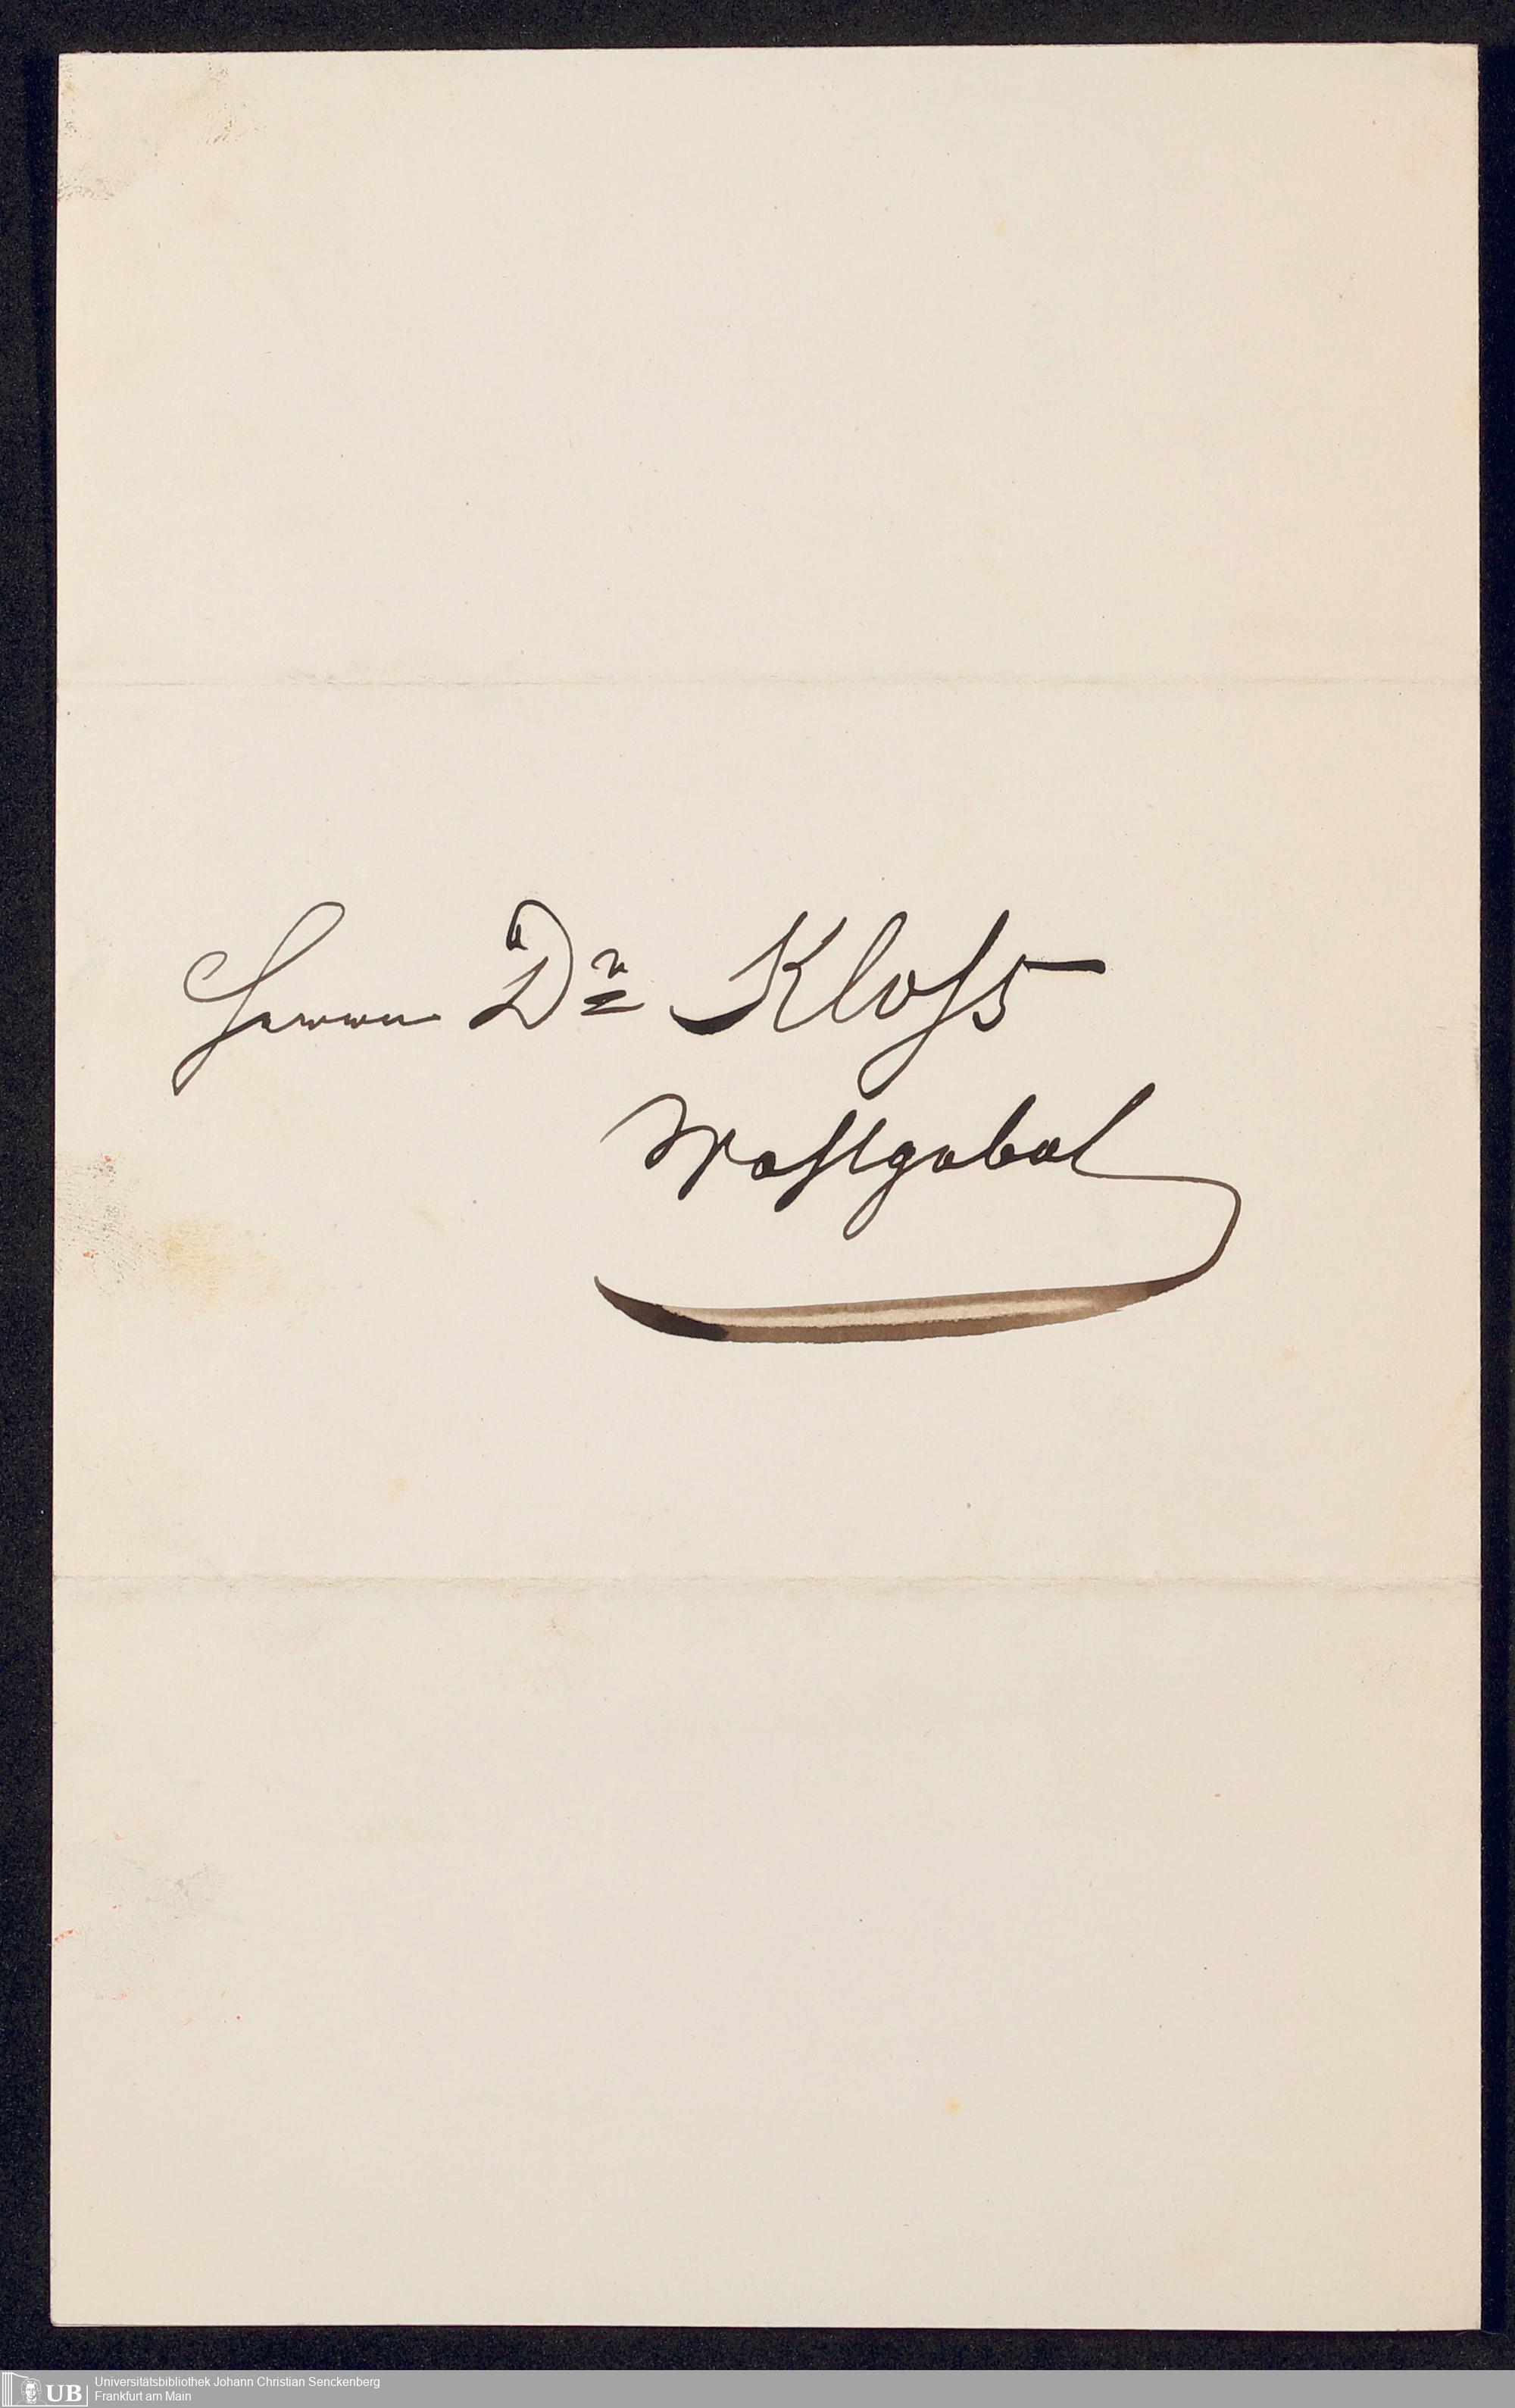 Herrn Dr Kloß
Wohlgebol
Universitätsbibliothek Johann Christian Senckenberg
Frankfurt am Main
UB